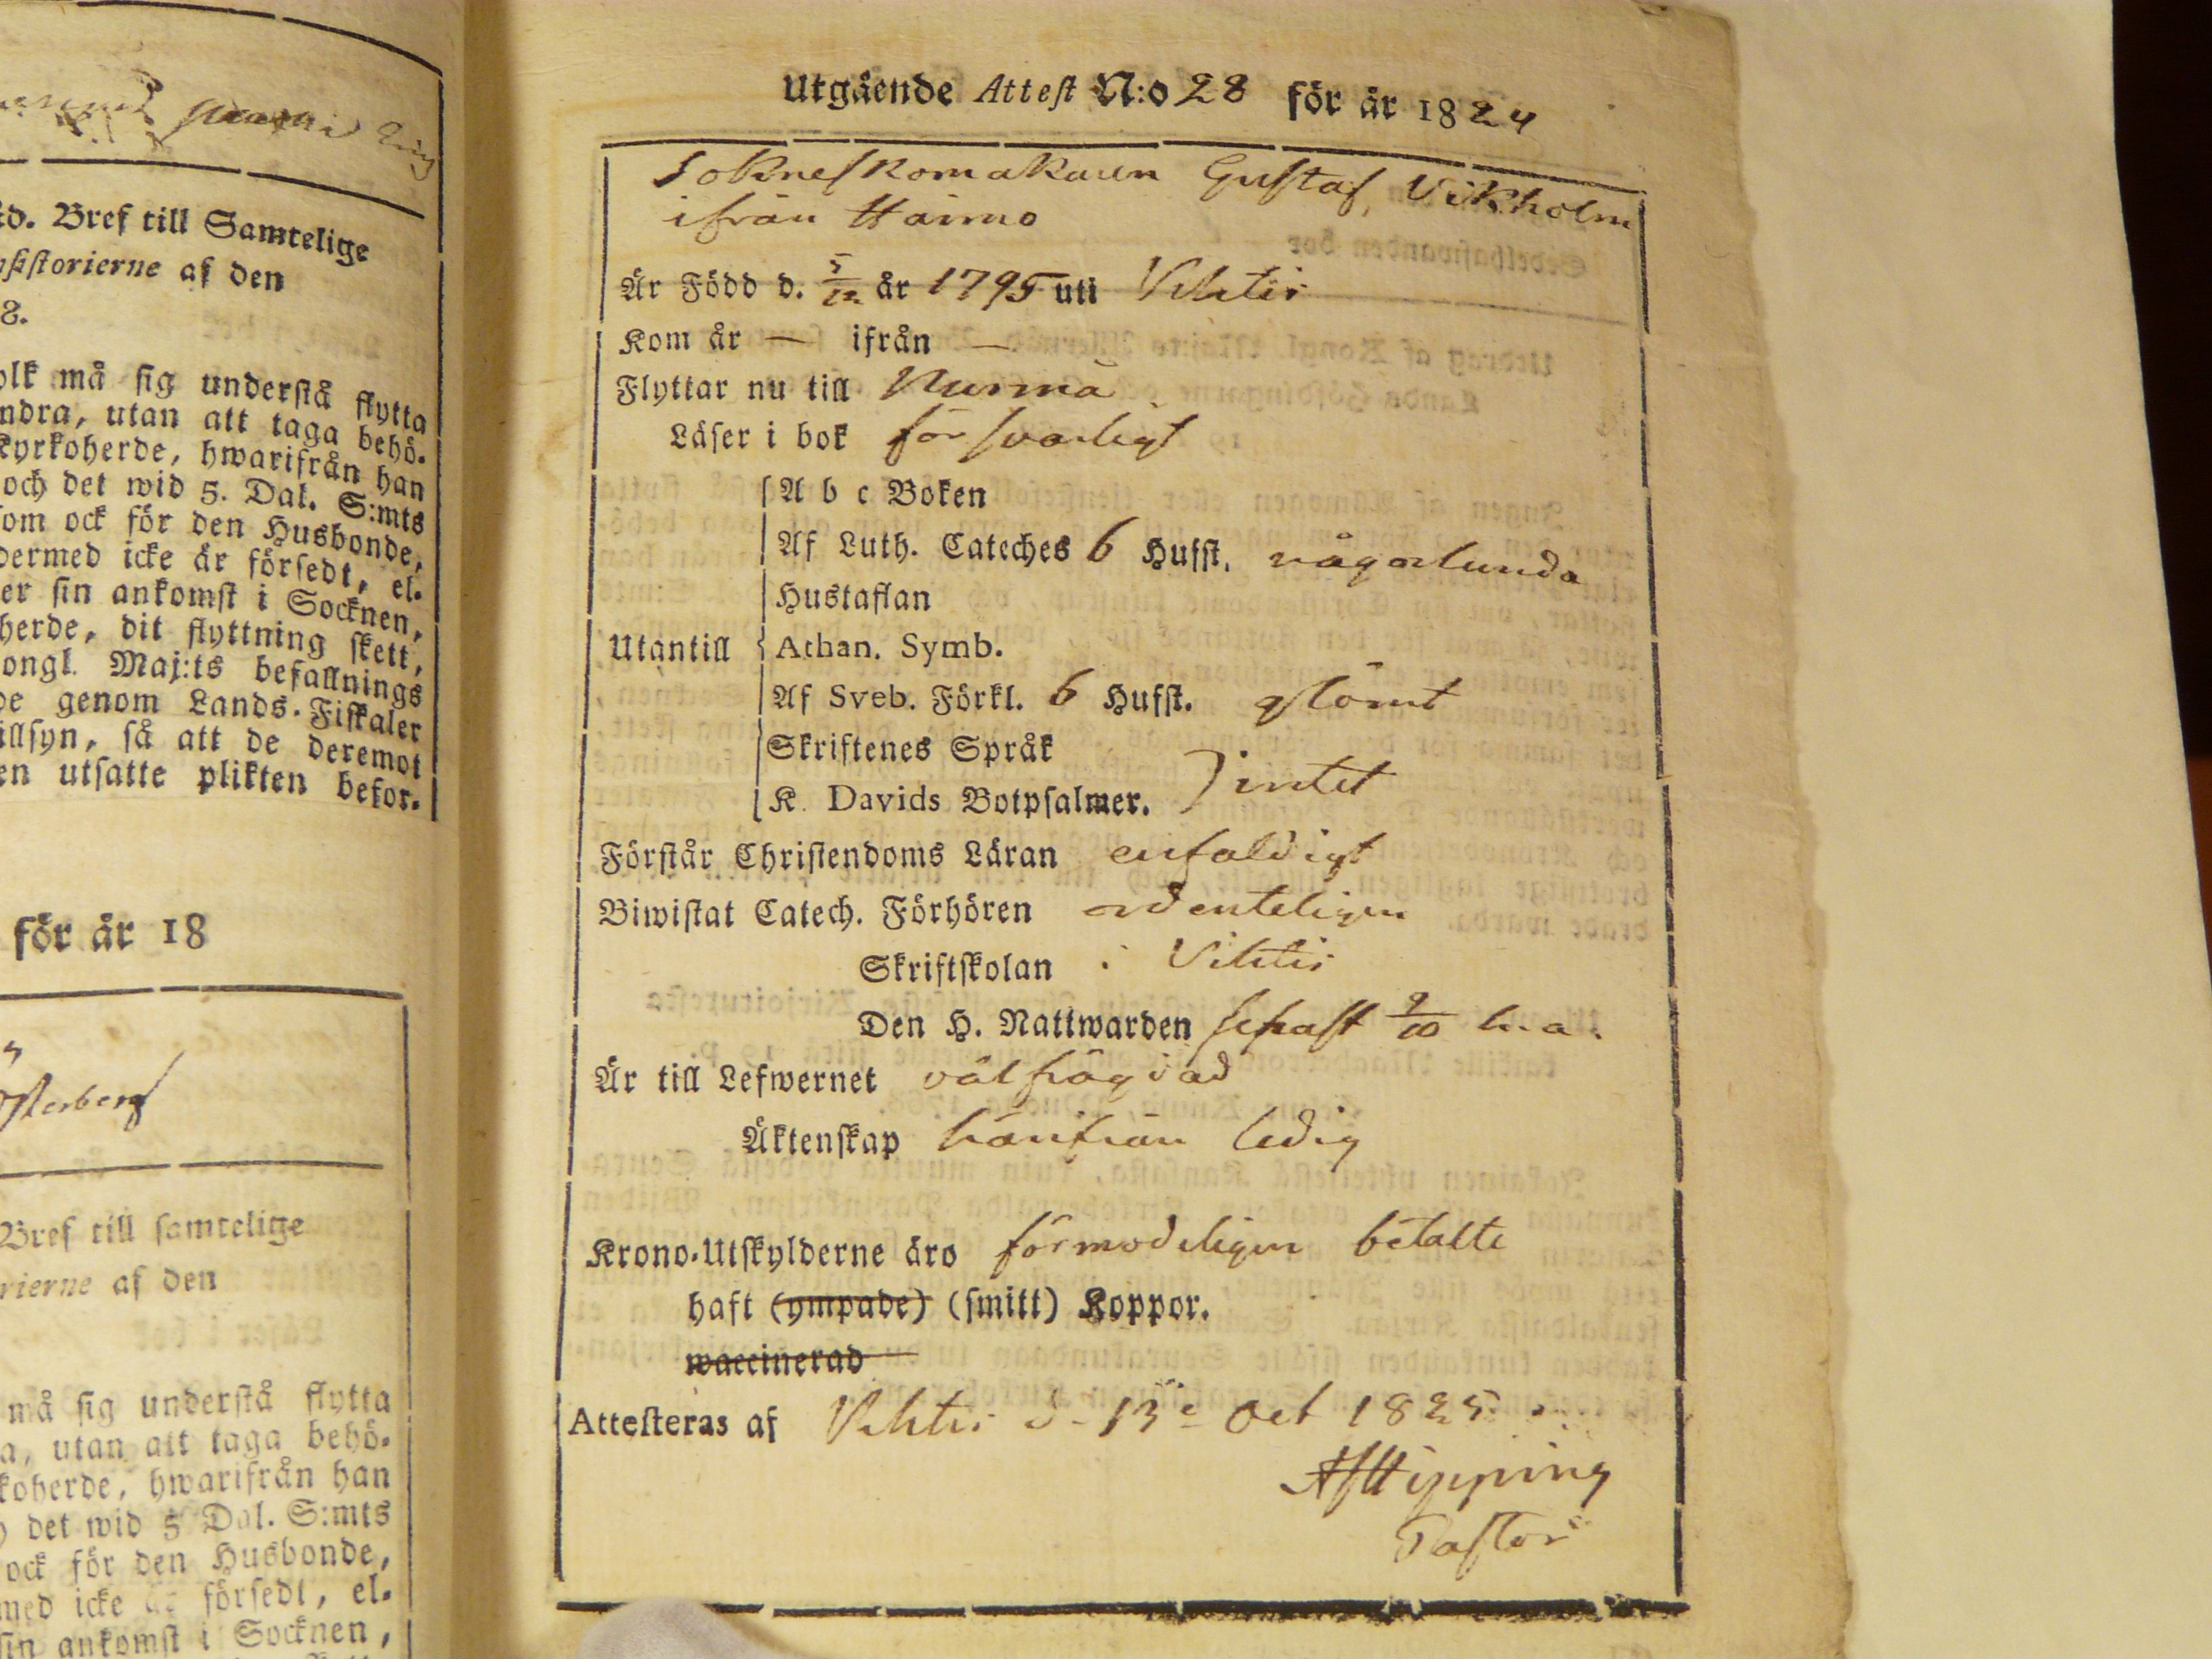 ůd. Bref till Samtelige
storierne af den
8.
olk må sig understå flytta
ndra, utan att taga behö-
kyrkoherde, hwarifrån han
och det wid 5. Dal. S:mts
som ock för den Husbonde,
dermed icke är försedt, el-
er sin ankomst i Socknen,
herde, dit flyttning skett,
ongl. Maj:ts befallnings
de genom Lands-Fiskaler
illsyn, så att de deremot
en utsatte plikten befor-
för år 18
Bref till samtelige
rierne af den
må sig understå flytta
a, utan att taga behö-
koherde, hwarifrån han
det wid 5 Dal. S:mts
ock för den Husbonde,
med icke är försedt, el-
sin ankomst i Socknen,
Utgående Attest N:o 28 för år 1824
Sokneskomakaren Gustaf Vikholm
ifrån Haimo
Är Född d. 5/12 år 1795 uti Vihtis
Kom år — ifrån —
Flyttar nu till Nurmä
Läser i bok försvarligt
A b c Boken
Af Luth. Cateches 6 Hufst. någorlunda
Hustaflan
Utantill Athan. Symb.
Af Sveb. Förkl. 6 Hufst. glömt
Skriftenes Språk
K. Davids Botpsalmer. } intet
Förstår Christendoms Läran enfaldigt
Biwistat Catech. Förhören ordenteligen
Skriftskolan i Vihtis
Den H. Nattwarden sistast 9/10 h. a.
Är till Lefwernet välfrägdad
Äktenskap härifrån ledig
Krono-Utskylderne äro förmodeligen betalte
haft (ympade) (smitt) Koppor.
waccinerad
Attesteras af Vihtis d. 13e Oct 1825
Hipping
Pastor